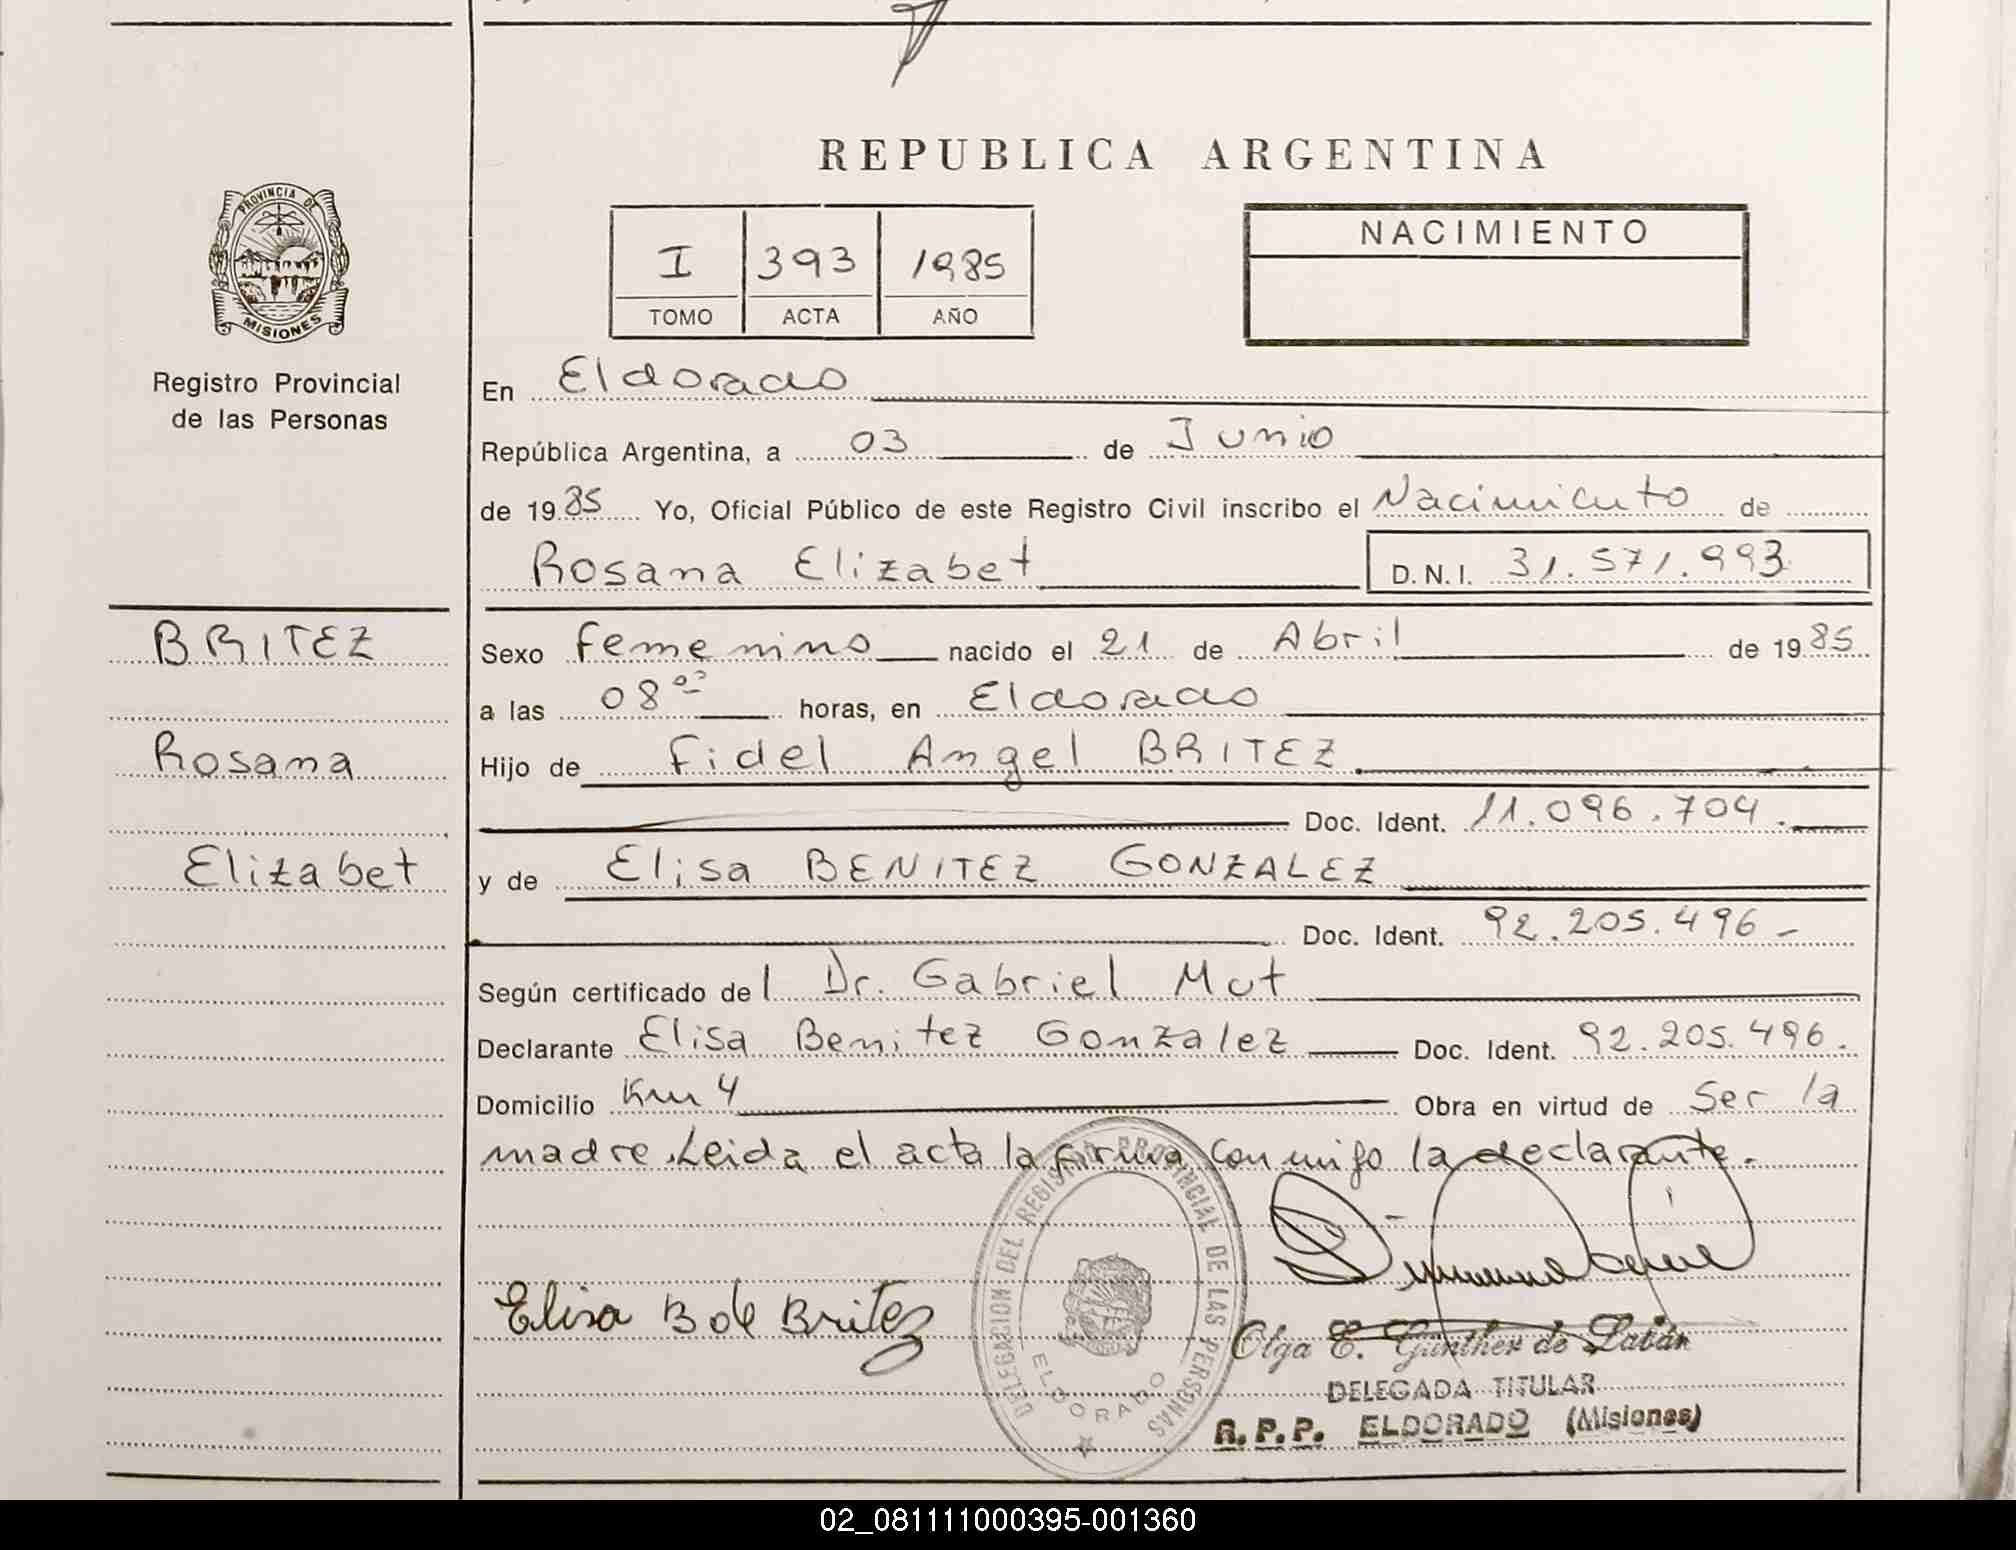 REPUBLICA ARGENTINA
PROVINCIA DE
MISIONES
Registro Provincial
de las Personas
I 393 1985
TOMO ACTA AÑO
NACIMIENTO
En Eldorado
República Argentina, a 03 de Junio
de 1985 Yo, Oficial Público de este Registro Civil inscribo el Nacimiento de
Rosana Elizabet D.N.I. 31.571.993
BRITEZ
Rosana
Elizabet
Sexo femenino nacido el 21 de Abril de 1985
a las 08 horas, en Eldorado
Hijo de Fidel Angel BRITEZ
Doc. Ident. 11.096.704.
y de Elisa BENITEZ GONZALEZ
Doc. Ident. 92.205.496-
Según certificado del Dr. Gabriel Mut
Declarante Elisa Benitez Gonzalez Doc. Ident. 92.205.496.
Domicilio Km 4 Obra en virtud de Ser la
madre. Leida el acta la firma conmigo la declarante.
Elisa B de Britez
DELEGACION DEL REGISTRO PROVINCIAL DE LAS PERSONAS
ELDORADO
Olga E. Günther de Labán
DELEGADA TITULAR
R.P.P. ELDORADO (Misiones)
02_081111000395-001360